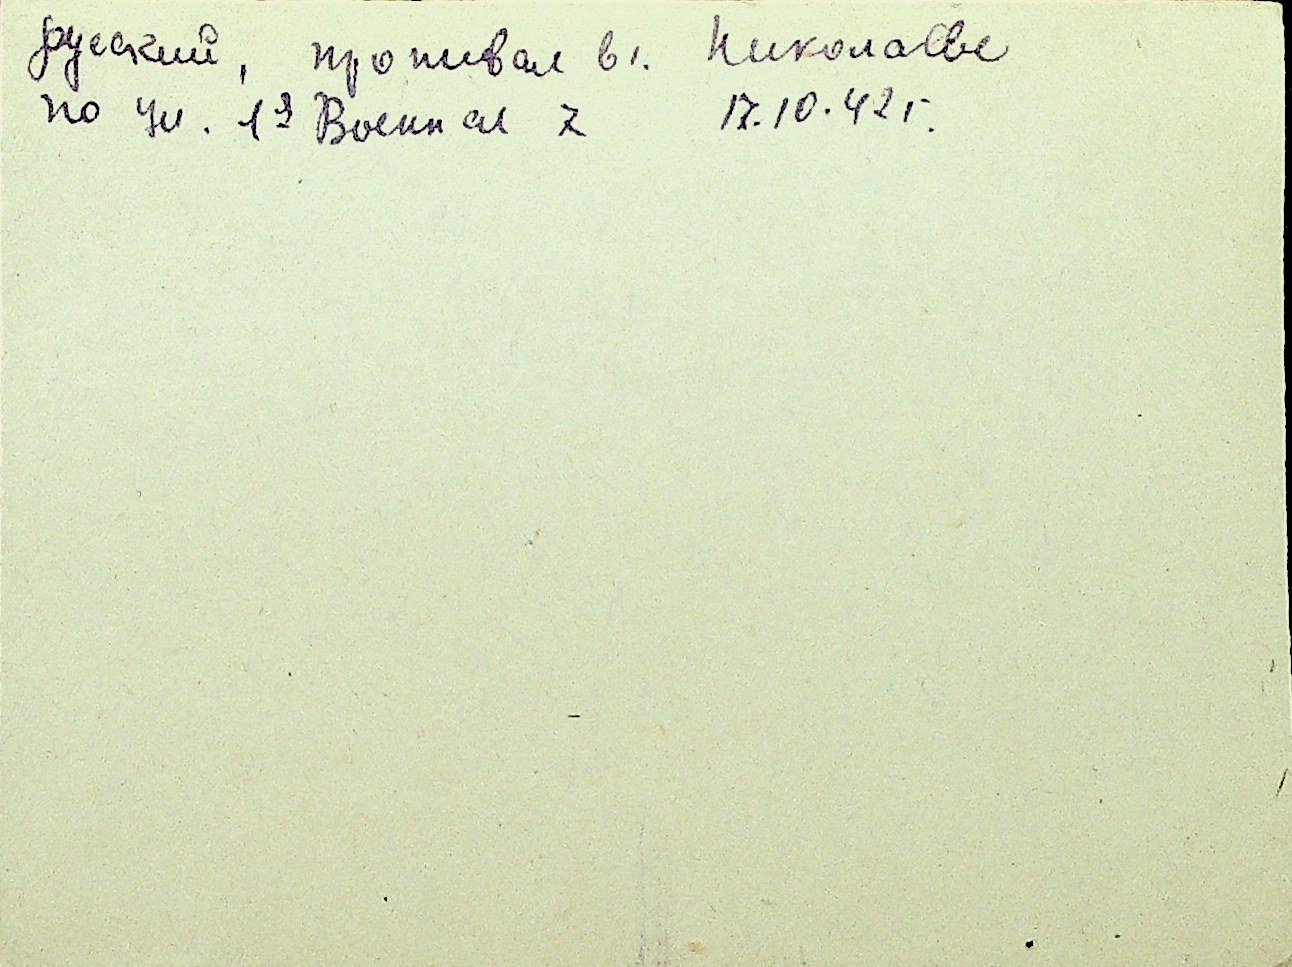 русский, проживал в г. Николаеве
по ул. 1я Военная 7 17.10.42 г.